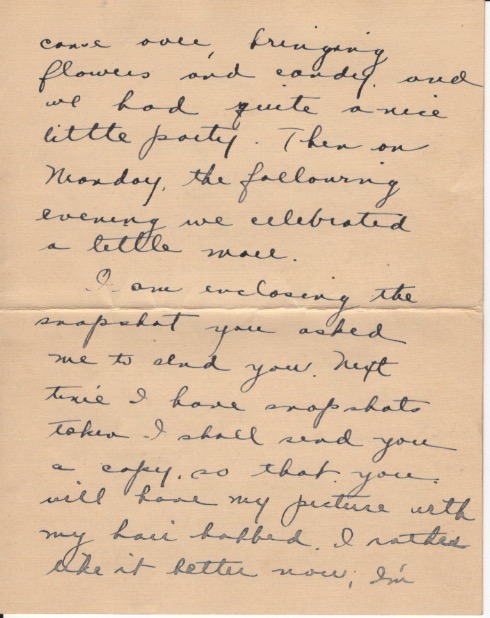 come over, bringing
flowers and candy and
we had quite a nice
little party. Then on
Monday, the following
evening we celebrated
a little more.
I am enclosing the
snapshot you asked
me to send you. Next
time I have snapshots
taken I shall send you
a copy, so that you
will have my picture with
my hair bobbed. I rather
like it better now; I'm